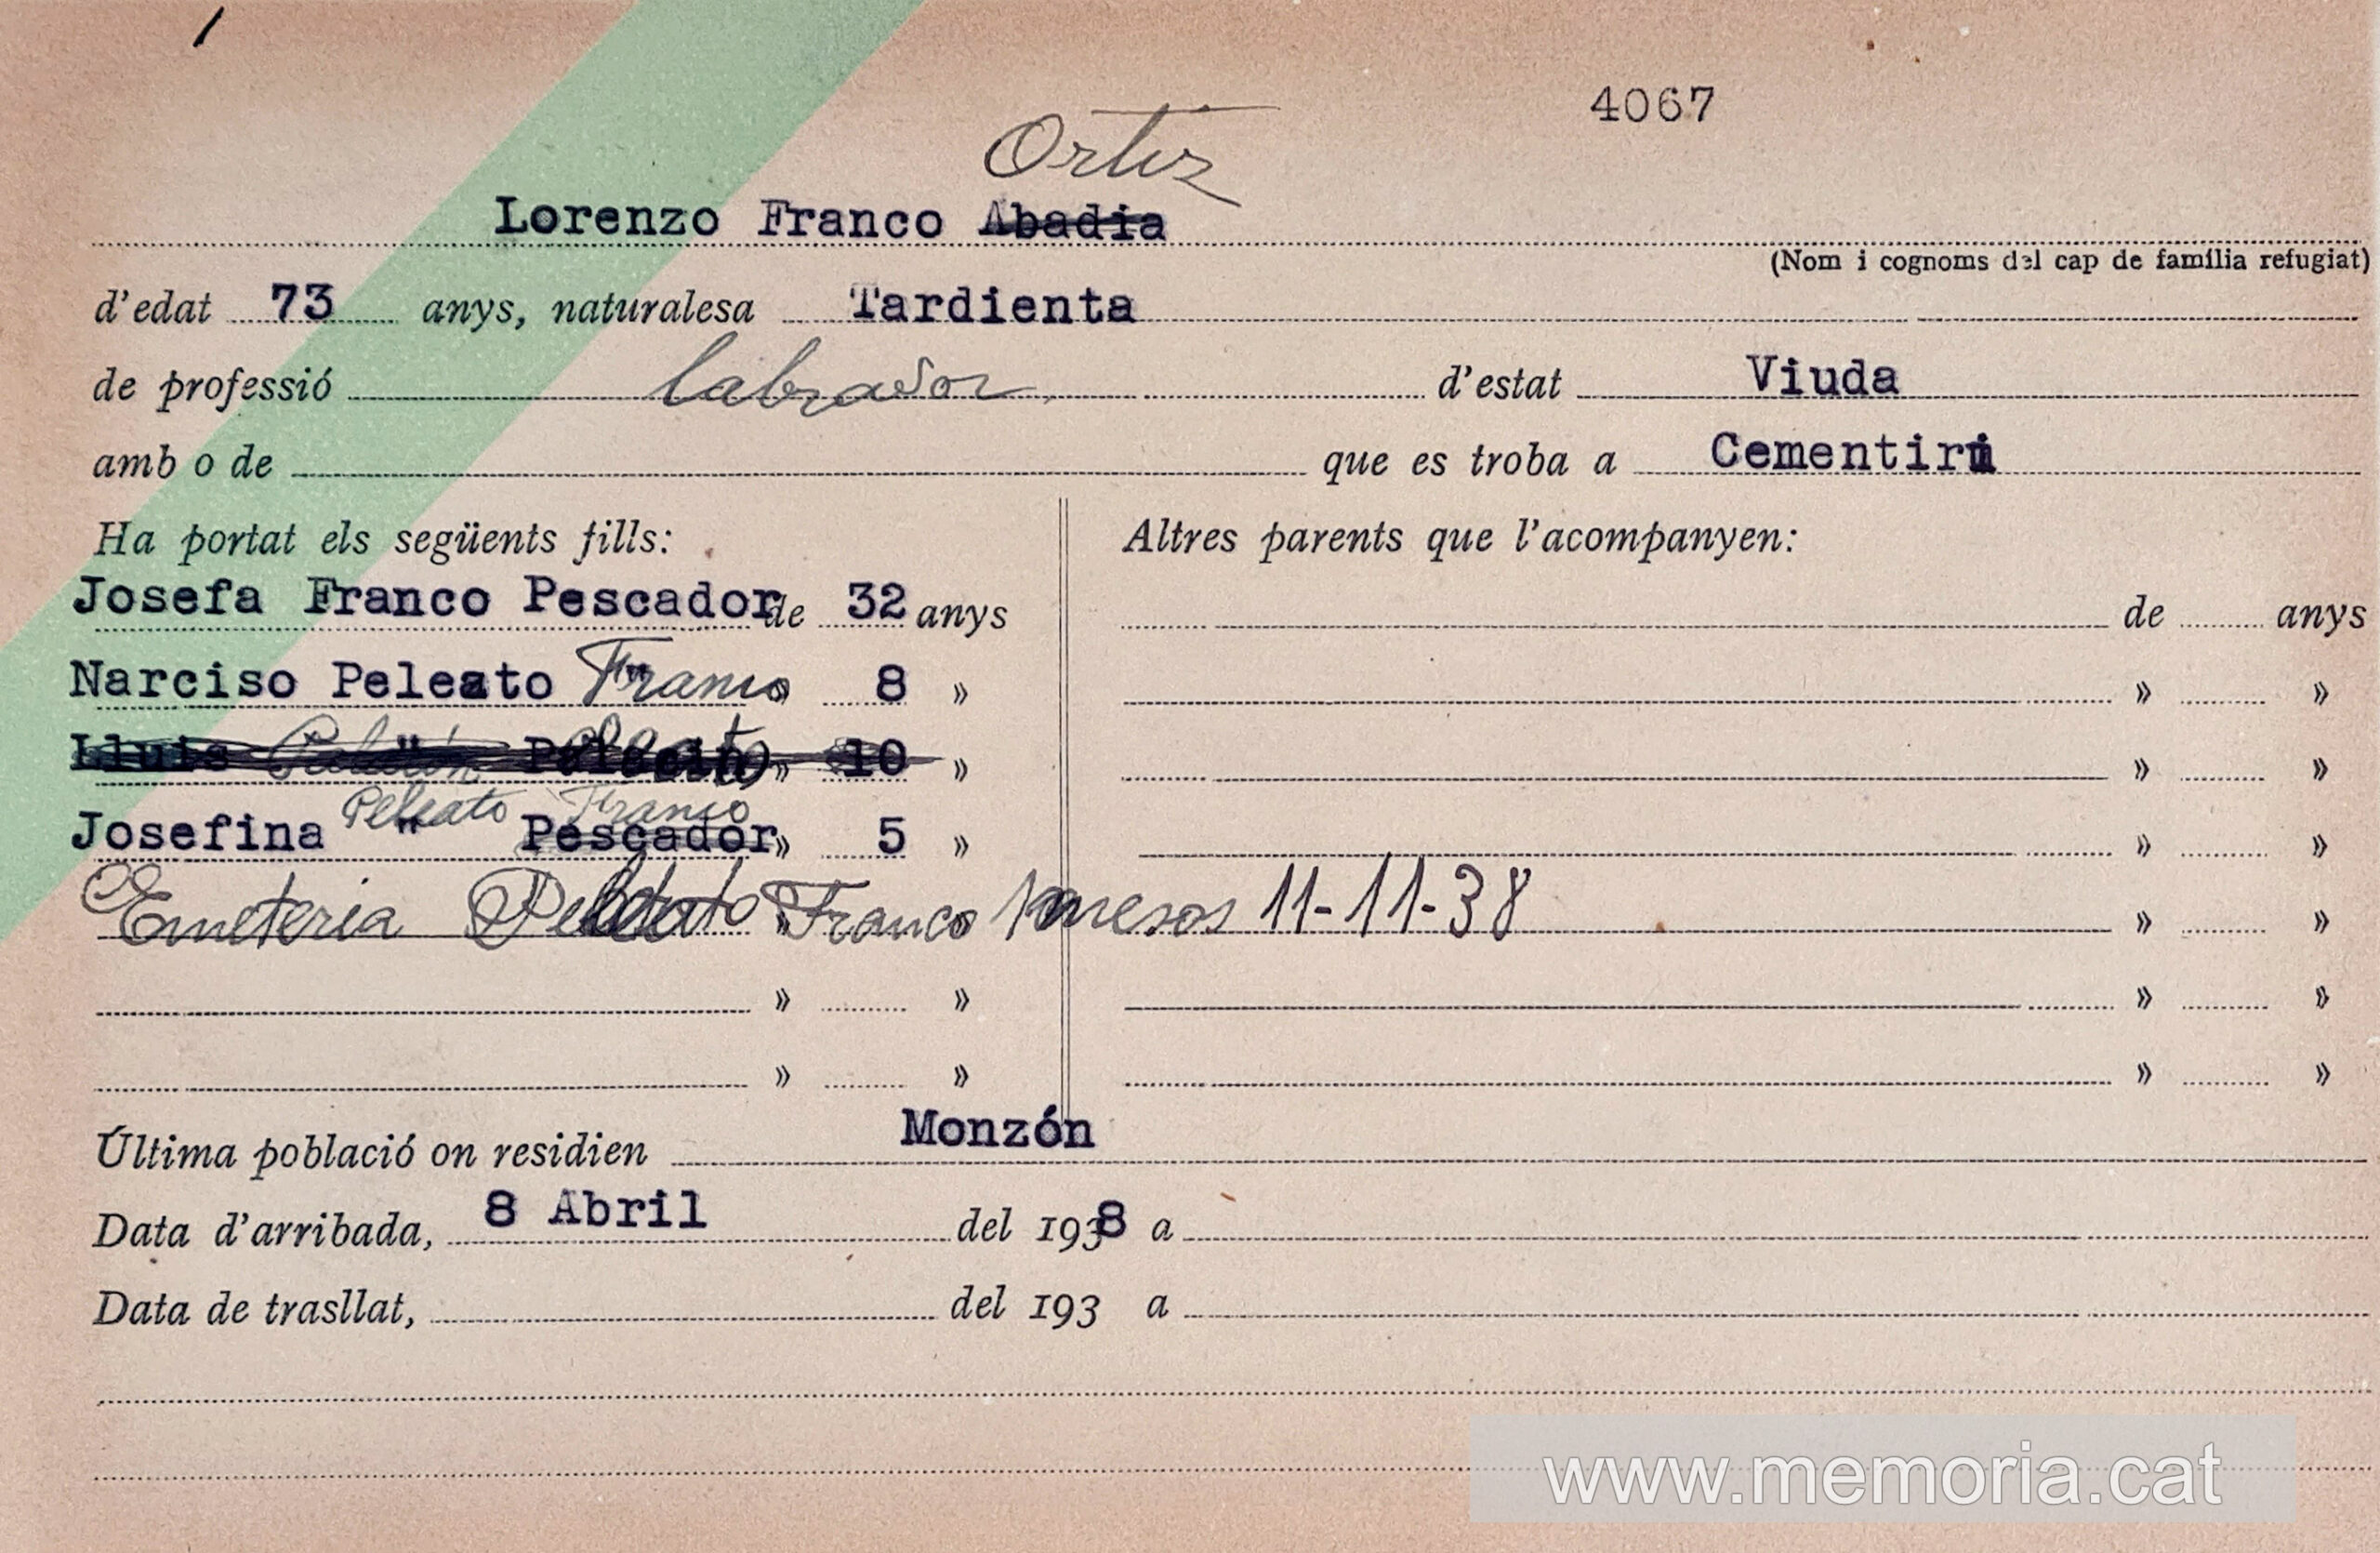 4067
Ortiz
Lorenzo Franco Abadia
(Nom i cognoms del cap de família refugiat)
d'edat 73 anys, naturalesa Tardienta
de professió labrador d'estat Viuda
amb o de que es troba a Cementiri
Ha portat els següents fills: Altres parents que l'acompanyen:
Josefa Franco Pescador de 32 anys de anys
Narciso Peleato Franco » 8 » » »
Lluis » 10 » » »
Peleato Franco
Josefina " Pescador » 5 » » »
Emeteria Peleato Franco mesos 11-11-38 » »
» » » »
» » » »
Última població on residien Monzón
Data d'arribada, 8 Abril del 1938 a
Data de trasllat, del 193 a
www.memoria.cat